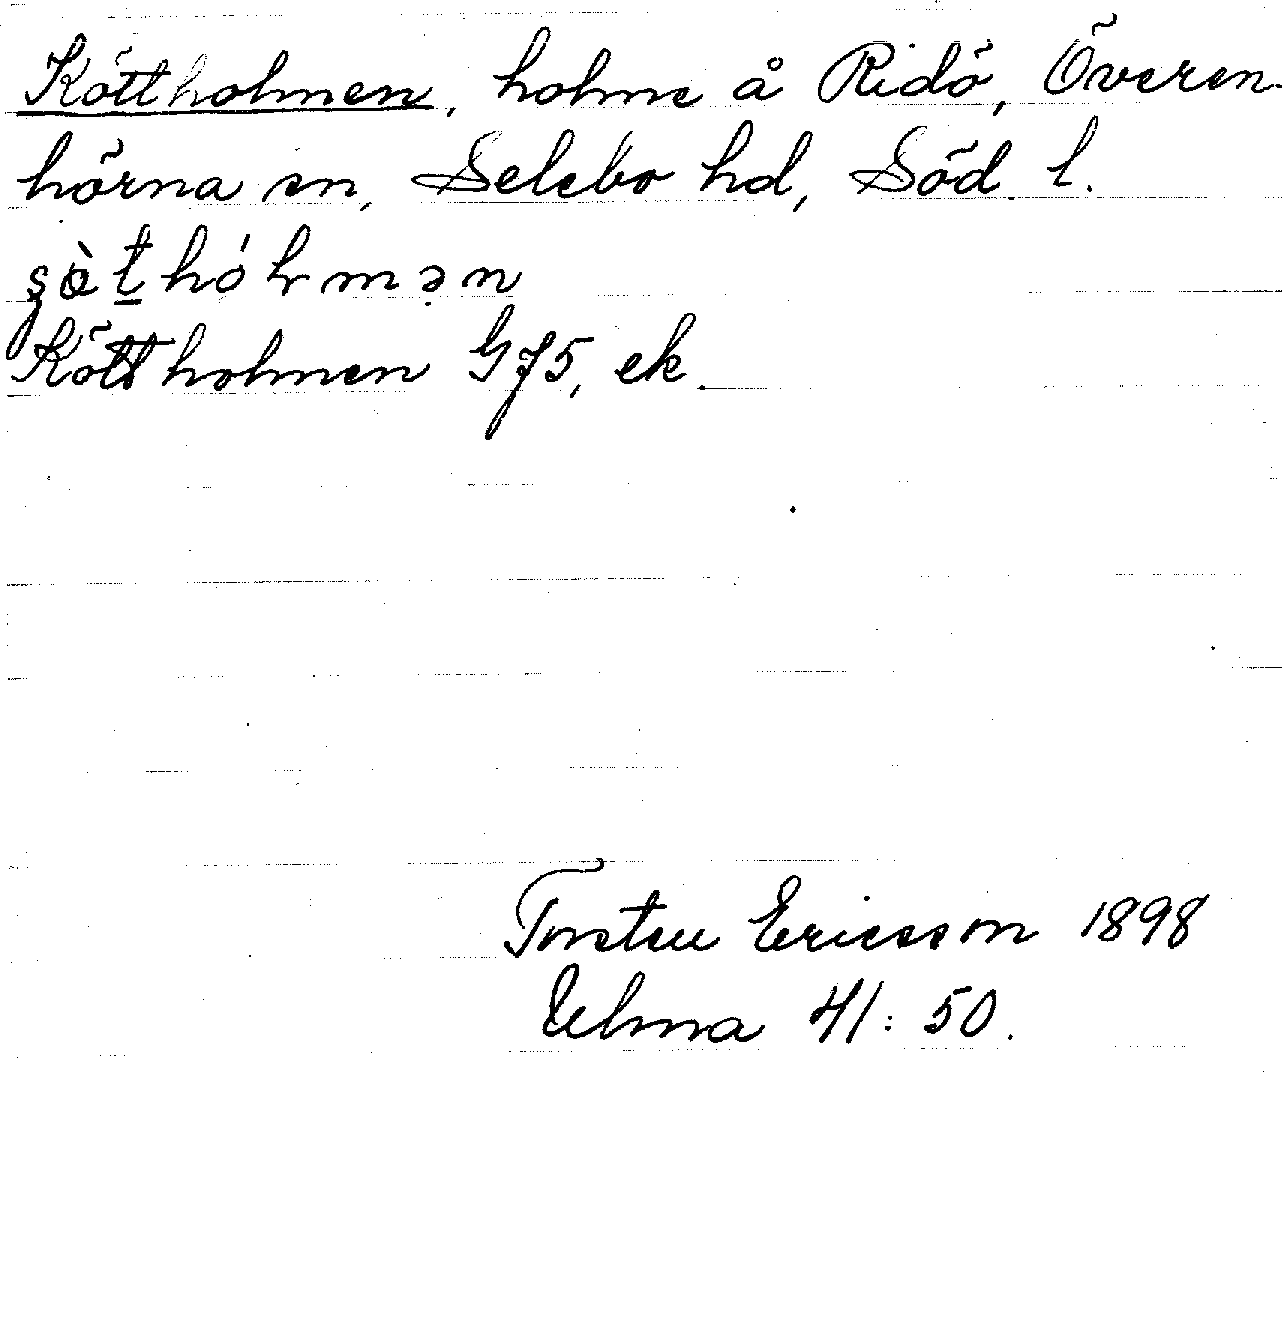 Köttholmen, holme å Ridö, Överen-
hörna sn, Selebo hd, Söd. l.
Köttholmen G75, ek.
Torsten Ericsson 1898
Ulma 41:50.